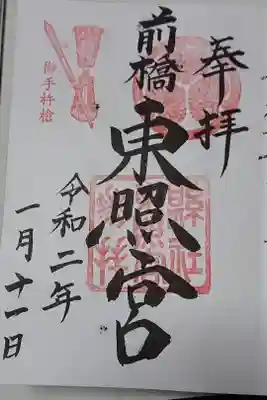 奉拝
前橋
東照宮
令和二年
一月十一日
御手杵槍
縣社